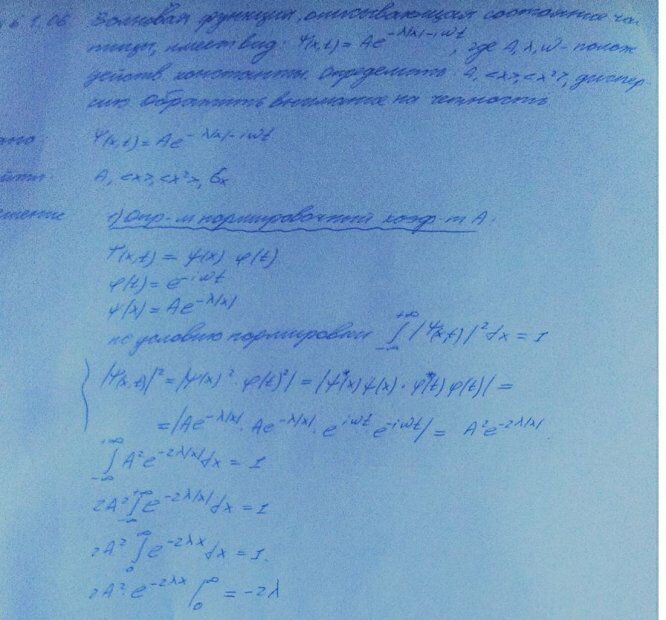 № 1.06 Волновая функция, описывающая состояние ча-
тицы, имеет вид: Ψ(x,t) = Ae^{-λ|x|-iωt}, где A, λ, ω - полож
действ. константы. Определить: A, <x>, <x²>, диспер-
сию. Обратить внимание на четность
ано: Ψ(x,t) = Ae^{-λ|x|-iωt}
айти: A, <x>, <x²>, σx
ешение 1) Опр-м нормировочный коэф-т A:
Ψ(x,t) = ψ(x)·φ(t)
φ(t) = e^{-iωt}
ψ(x) = Ae^{-λ|x|}
по условию нормировки ∫_{-∞}^{+∞} |Ψ(x,t)|² dx = 1
|Ψ(x,t)|² = |ψ(x)²·φ(t)²| = |ψ*(x)ψ(x)·φ*(t)φ(t)| =
= |Ae^{-λ|x|}·Ae^{-λ|x|}·e^{iωt}·e^{-iωt}| = A²e^{-2λ|x|}
∫_{-∞}^{+∞} A²e^{-2λ|x|} dx = 1
2A² ∫_{-∞}^{+∞} e^{-2λ|x|} dx = 1
2A² ∫_0^∞ e^{-2λx} dx = 1.
2A²·e^{-2λx} |_0^∞ = -2λ